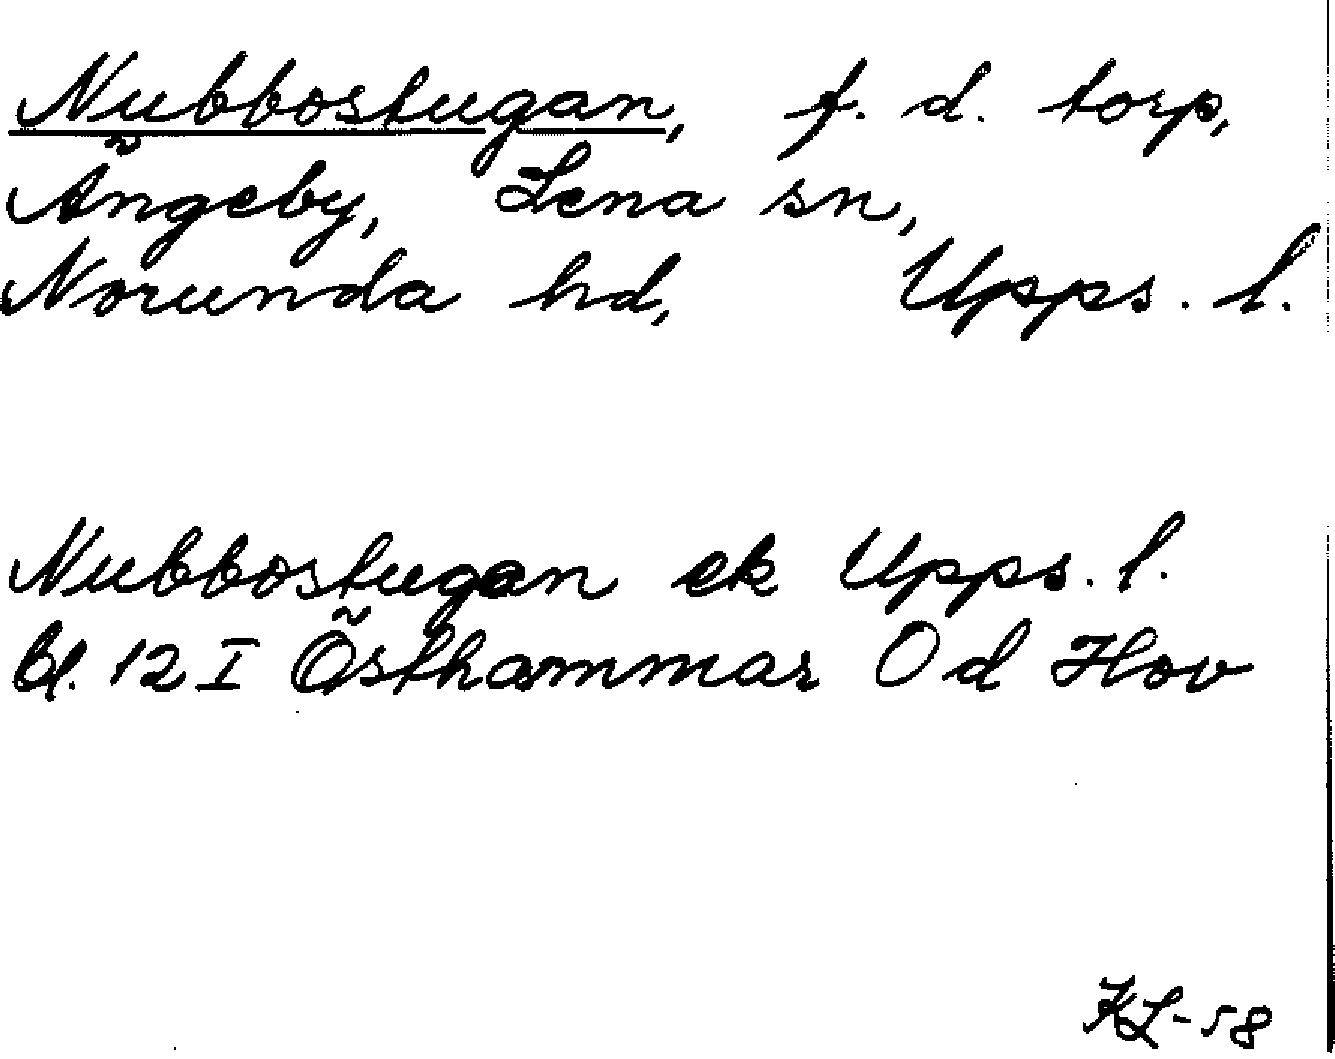 Nubbostugan, f. d. torp,
Ängeby, Lena sn,
Norunda hd, Upps. l.
Nubbostugan ek Upps. l.
bl. 12 I Östhammar Od Hov
KL-58